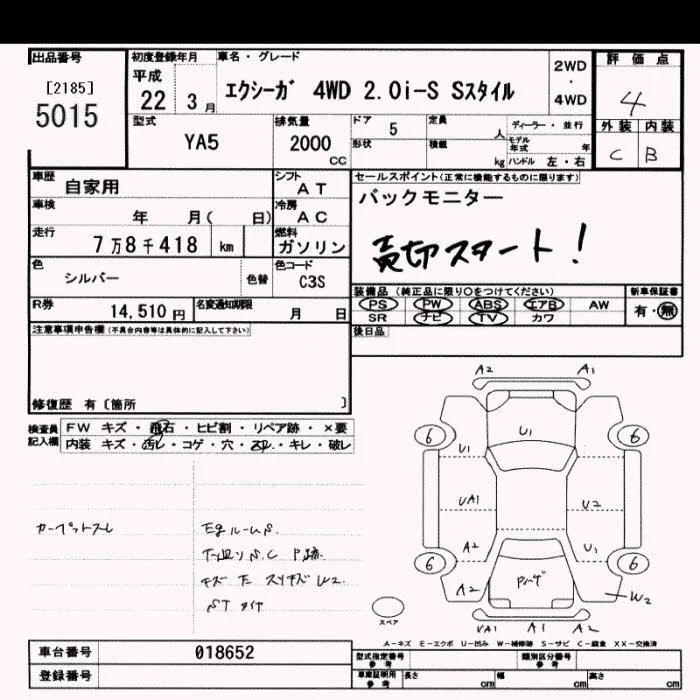 出品番号
[2185]
5015
初度登録年月
平成
22 3 月
車名・グレード
エクシーガ 4WD 2.0i-S Sスタイル
2WD
・
4WD
評価点
4
外装 内装
C B
型式
YA5
排気量
2000
CC
ドア
5
定員
人
形状
積載
kg
ディーラー・並行
モデル年式 年
ハンドル 左・右
車歴
自家用
シフト
AT
車検
年 月( 日)
冷房
AC
走行
7万8千418 km
燃料
ガソリン
色
シルバー
色替
色コード
C3S
R券
14,510 円
名変通知期限
月 日
セールスポイント(正常に機能するものに限ります)
バックモニター
売切スタート!
装備品(純正品に限り○をつけてください)
PS PW ABS エアB AW
SR ナビ TV カワ
新車保証書
有・無
後日品
注意事項申告欄(不具合内容等は具体的に記入して下さい)
修復歴 有〔箇所 〕
検査員記入欄
FW キズ・飛石・ヒビ割・リペア跡・×要
内装 キズ・汚レ・コゲ・穴・ヌレ・キレ・破レ
カーペットスレ
Egルーム S.
下廻りS.C P跡.
キズ 天 スリキズ W2.
A2 A1
U1
6 6
U1
UA1 U2
A2 U1
6 6
A2
W2
UA1 A1 A2
スペア
A-キズ E-エクボ U-凹み W-補修跡 S-サビ C-腐食 XX-交換済
車台番号
018652
登録番号
型式指定番号
参考
類別区分番号
参考
車庫証明用
参考
長さ cm
幅 cm
高さ cm